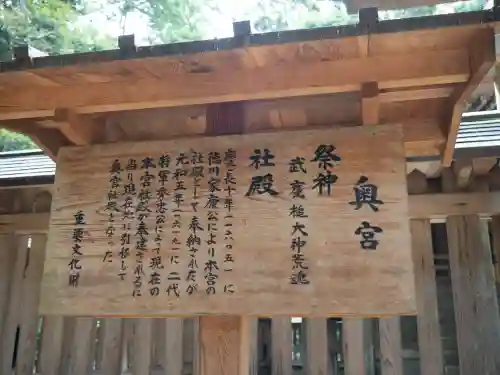 奥宮
祭神 武甕槌大神荒魂
社殿 慶長十年(一六〇五)に
徳川家康公により本宮の
社殿として奉納されたが
元和五年(一六一九)に二代
将軍秀忠公によって現在の
本宮社殿が奉建されるに
当り現在地に引移して
奥宮社殿となった
重要文化財